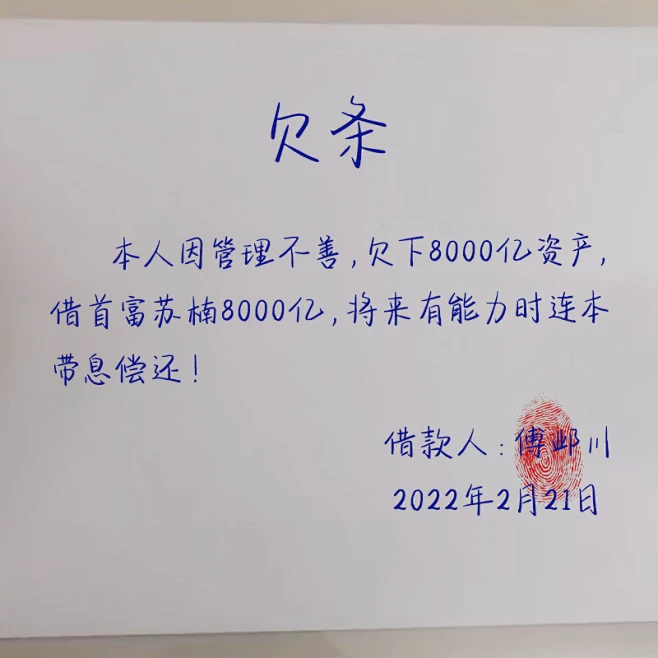 欠条
本人因管理不善,欠下8000亿资产,
借首富苏楠8000亿,将来有能力时连本
带息偿还!
借款人:傅邺川
2022年2月21日